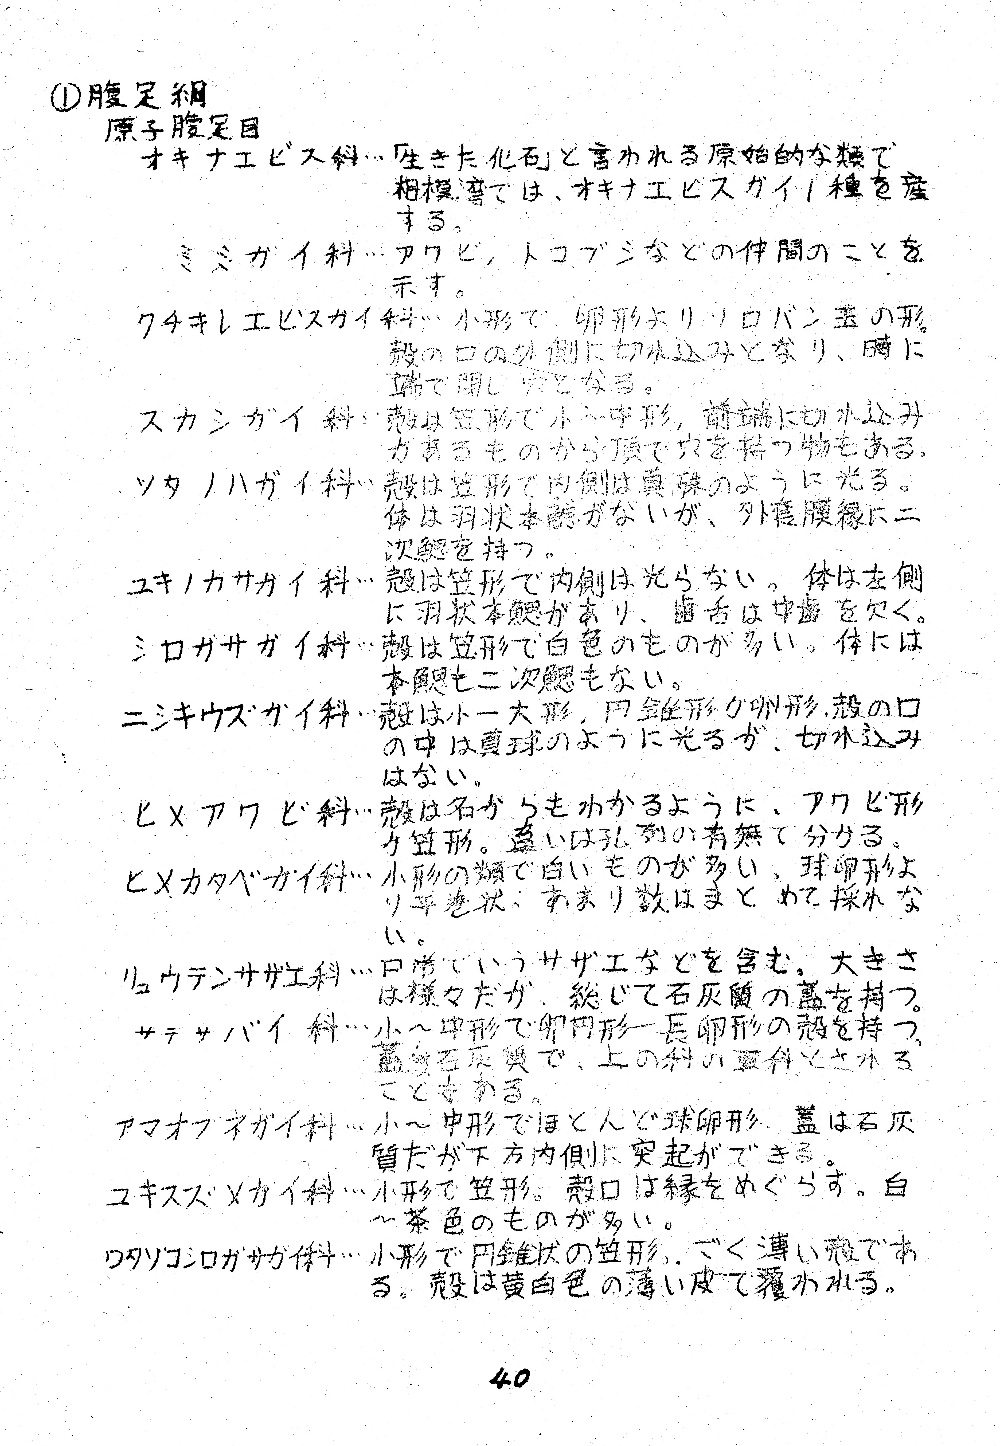 ①腹足綱
原子腹足目
オキナエビス科…「生きた化石」と言われる原始的な類で
相模湾では、オキナエビスガイ1種を産
する。
ミミガイ科…アワビ, トコブシなどの仲間のことを
示す。
クチキレエビスガイ科…小形で、卵形よりソロバン玉の形。
殻の口の外側に切れ込みとなり、時に
端で閉じ穴となる。
スカシガイ科…殻は笠形で小〜中形, 前端に切れ込み
があるものから頂で穴を持つ物もある.
ツタノハガイ科…殻は笠形で内側は真珠のように光る。
体は羽状本鰓がないが、外套膜縁に二
次鰓を持つ。
ユキノカサガイ科…殻は笠形で内側は光らない。体は左側
に羽状本鰓があり、歯舌は中歯を欠く。
シロガサガイ科…殻は笠形で白色のものが多い。体には
本鰓も二次鰓もない。
ニシキウズガイ科…殻は小ー大形, 円錐形か卵形.殻の口
の中は真球のように光るが、切れ込み
はない。
ヒメアワビ科…殻は名からもわかるように、アワビ形
か笠形。違いは孔列の有無で分かる。
ヒメカタベガイ科…小形の類で白いものが多い、球卵形よ
り平巻状。あまり数はまとめて採れな
い。
リュウテンサザエ科…日常でいうサザエなどを含む。大きさ
は様々だが、総じて石灰質の蓋を持つ。
サテサバイ科…小〜中形で卵円形ー長卵形の殻を持つ。
蓋も石灰質で、上の科の亜科とされる
こともある。
アマオブネガイ科…小〜中形でほとんど球卵形. 蓋は石灰
質だが下方内側に突起ができる。
ユキスズメガイ科…小形で笠形。殻口は縁をめぐらす。白
〜茶色のものが多い。
ワタゾコシロガサガイ科…小形で円錐状の笠形, ごく薄い殻であ
る。殻は黄白色の薄い皮で覆われる。
40